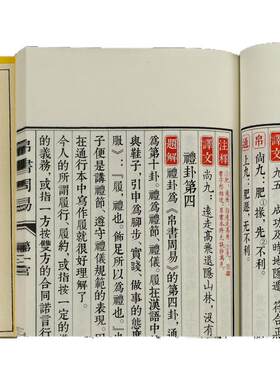 譯文
九五
成功及時地隱退，符合正
帛 尚九：肥掾，先不利。
通 上九：肥遯，无不利。
注釋
譯文 尚九，遠走高飛退隱山林，沒有
禮卦第四
題解 禮卦爲《帛書周易》的第四卦，通
爲第十卦。履的本義爲禮。履在漢語中
與鞋子，引申爲腳步，實踐，做事的態度
服』：『履，禮也。飾足所以爲禮也。』
子便是講禮節、遵守禮儀規範的表現。因
在通行本中寫作履就很好理解了。
今人的所謂履行、履約，或指按一定的道
的義務，或指一方按雙方的合同諾言行
帛書周易 第一宫